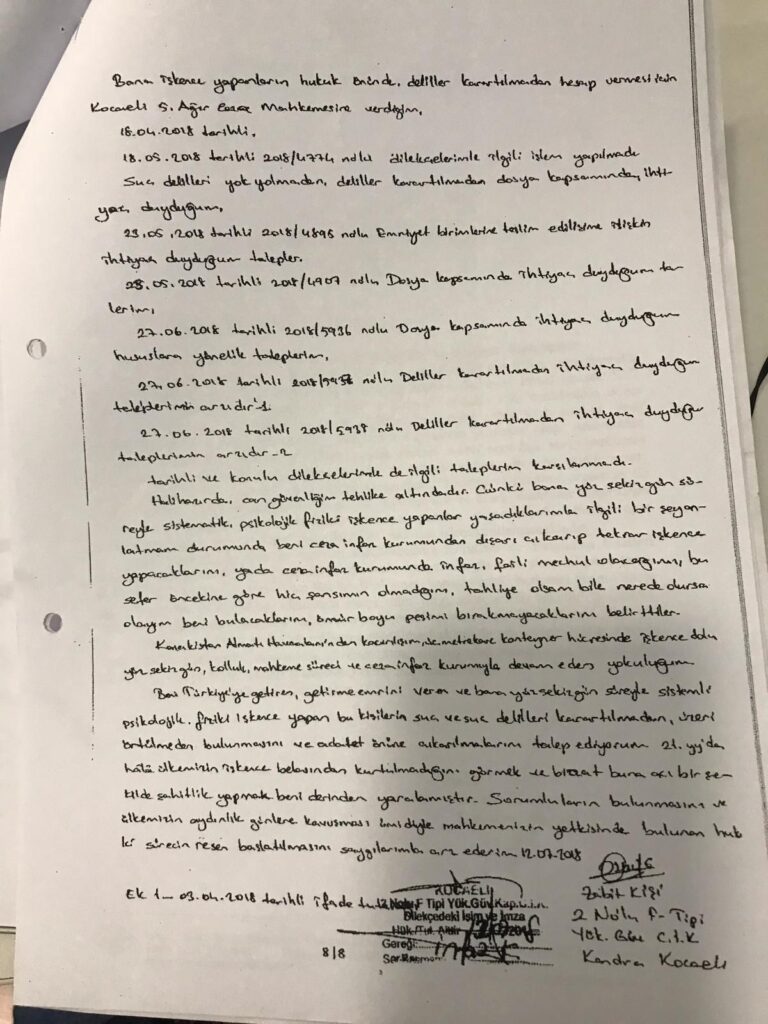 Bana işkence yapanların hukuk önünde, deliller karartılmadan hesap vermesi için
Kocaeli 5. Ağır Ceza Mahkemesine verdiğim,
18.04.2018 tarihli,
18.05.2018 tarihli 2018/4774 nolu dilekçelerimle ilgili işlem yapılmadı
Suç delilleri yok yolmadan, deliller karartılmadan dosya kapsamında, ihti-
yaç duyduğum,
23.05.2018 tarihli 2018/4896 nolu Emniyet birimlerine teslim edilişime ilişkin
ihtiyaç duyduğum talepler.
28.05.2018 tarihli 2018/4907 nolu Dosya kapsamında ihtiyaç duyduğum ta-
lerim,
27.06.2018 tarihli 2018/5936 nolu Dosya kapsamında ihtiyaç duyduğum
hususlara yönelik taleplerim,
27.06.2018 tarihli nolu Deliller karartılmadan ihtiyaç duyduğum
taleplerimin arzıdır-1
27.06.2018 tarihli 2018/5938 nolu Deliller karartılmadan ihtiyaç duyduğum
taleplerimin arzıdır-2
tarihli ve konulu dilekçelerimle de ilgili taleplerim karşılanmadı.
Halihazırda, can güvenliğim tehlike altındadır. Çünkü bana yüz sekiz gün sü-
reyle sistematik, psikolojik fiziki işkence yapanlar yaşadıklarımla ilgili bir şey an-
latmam durumunda beni ceza infaz kurumundan dışarı çıkarıp tekrar işkence
yapacaklarını, yada ceza infaz kurumunda infaz, faili meçhul olacağımı, bu
sefer öncekine göre hiç şansımın olmadığını, tahliye olsam bile nerede olursa
olayım beni bulacaklarını, ömür boyu peşimi bırakmayacaklarını belirttiler.
Kazakistan Almatı Havaalanı'ndan kaçırılışım, metrekare konteyner hücresinde işkence dolu
yüz sekiz gün, kolluk, mahkeme süreci ve ceza infaz kurumuyla devam eden yokuluğum
Beni Türkiye'ye getiren, getirme emrini veren ve bana yüz sekiz gün süreyle sistemli
psikolojik, fiziki işkence yapan bu kişilerin suç ve suç delilleri karartılmadan, üzeri
örtülmeden bulunmasını ve adalet önüne çıkarılmalarını talep ediyorum 21. yy'da
hâlâ ülkemizin işkence belasından kurtulmadığını görmek ve bizzat buna acı bir şe-
kilde şahitlik yapmak beni derinden yaralamıştır. Sorumluların bulunmasını ve
ülkemizin aydınlık günlere kavuşması ümidiyle mahkemenizin yetkisinde bulunan huku
ki sürecin resen başlatılmasını saygılarımla arz ederim 12.07.2018
Ek 1- 03.04.2018 tarihli ifade
KOCAELİ
2 Nolu F Tipi Yük.Güv.Kap.
Dilekçedeki İsim ve İmza
Gereği:
Zabit Kişi
2 Nolu F-Tipi
Yük. Güv. C.İ.K
Kandıra Kocaeli
8/8